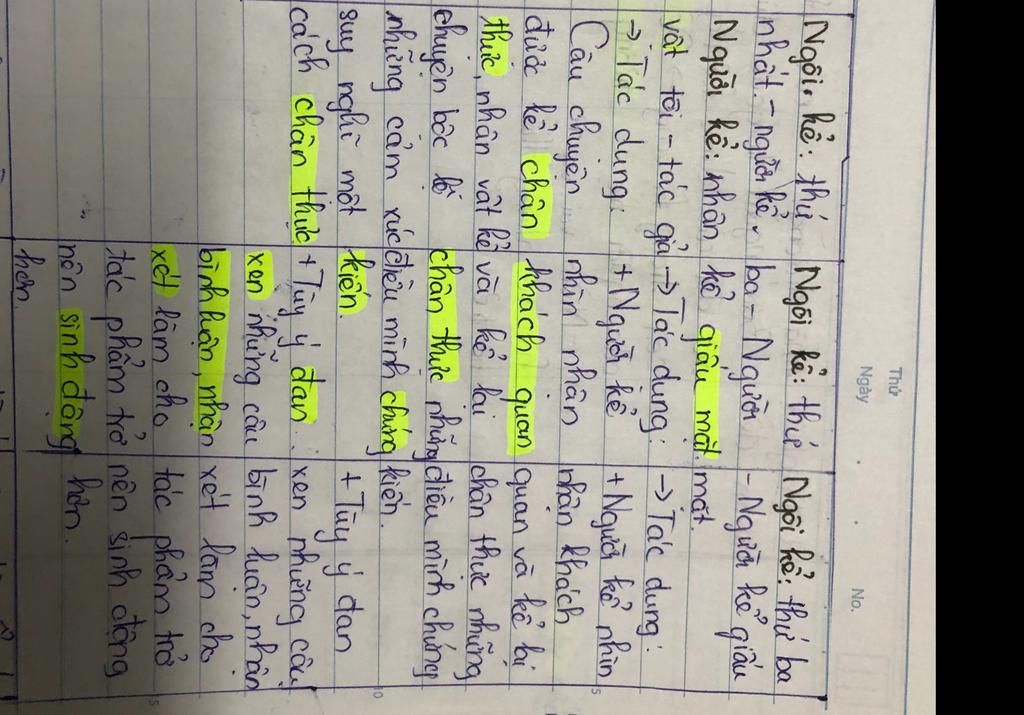 Thứ
Ngày
No.
Ngôi kể: thứ
nhất - người kể.
Người kể: nhân
vật tôi - tác giả
→ Tác dụng:
Câu chuyện
được kể chân
thực, nhân vật kể
chuyện bộc lộ
những cảm xúc
suy nghĩ một
cách chân thực
Ngôi kể: thứ
ba - Người
kể giấu mặt
→ Tác dụng:
+ Người kể
nhìn nhận
khách quan
và kể lại
chân thực những
điều mình chứng
kiến.
+ Tùy ý đan
xen những câu
bình luận, nhận
xét làm cho
tác phẩm trở
nên sinh động
hơn.
Ngôi kể: thứ ba
- Người kể giấu
mặt.
→ Tác dụng:
+ Người kể nhìn
nhận khách
quan và kể lại
chân thực những
điều mình chứng
kiến.
+ Tùy ý đan
xen những câu
bình luận, nhận
xét làm cho
tác phẩm trở
nên sinh động
hơn.
5
10
15